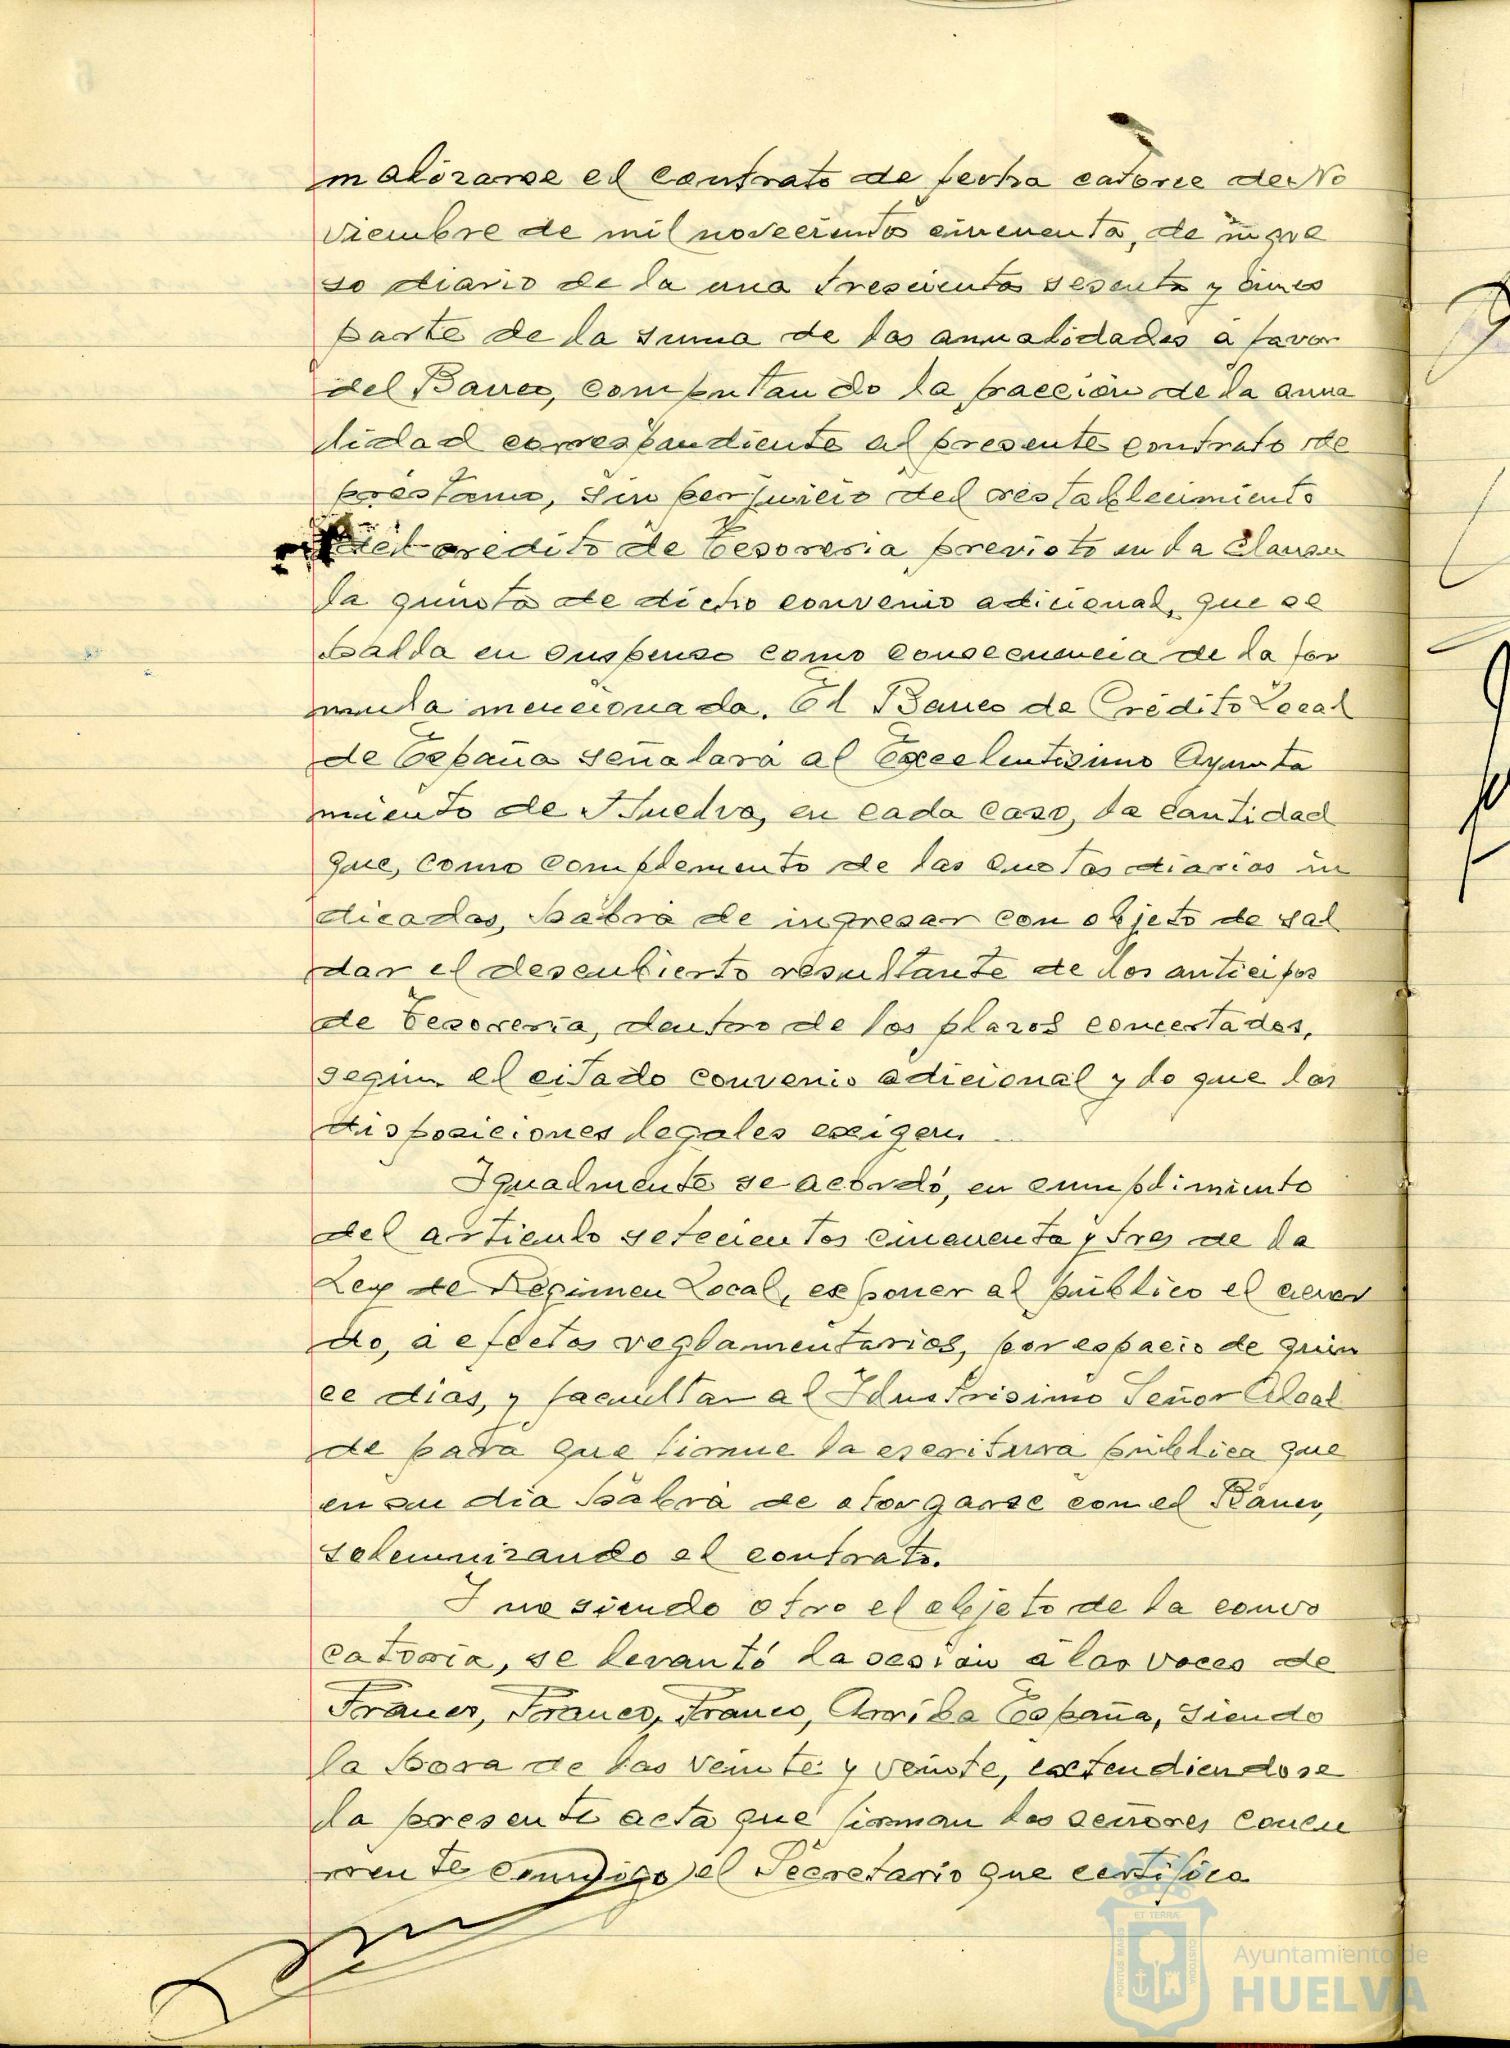 malizarse el contrato de fecha catorce de No
viembre de mil novecientos cincuenta, de ingre
so diario de la una trescientos sesenta y cinco
parte de la suma de las anualidades a favor
del Banco, computando la fracción de la anua
lidad correspondiente al presente contrato de
préstamo, sin perjuicio del restablecimiento
del crédito de Tesoreria previsto en la Clausu
la quinta de dicho convenio adicional, que se
halla en suspenso como consecuencia de la for
mula mencionada. El Banco de Crédito Local
de España señalará al Excelentisimo Ayunta
miento de Huelva, en cada caso, la cantidad
que, como complemento de las cuotas diarias in
dicadas, habrá de ingresar con objeto de sal
dar el descubierto resultante de los anticipos
de Tesoreria, dentro de los plazos concertados,
según el citado convenio adicional y lo que las
disposiciones legales exigen.
Igualmente se acordó, en cumplimiento
del articulo setecientos cincuenta y tres de la
Ley de Régimen Local, exponer al público el acuer
do, a efectos reglamentarios, por espacio de quin
ce dias, y facultar al Ilustrisimo Señor Alcal
de para que firme la escritura pública que
en su dia habrá de otorgarse con el Banco,
solemnizando el contrato.
Y no siendo otro el objeto de la convo
catoria, se levantó la sesión a las voces de
Franco, Franco, Franco, Arriba España, siendo
la hora de las veinte y veinte, extendiendose
la presente acta que firman los señores concu
rrente conmigo el Secretario que certifico
ET TERRÆ
PORTUS MARIS
CUSTODIA
Ayuntamiento de
HUELVA